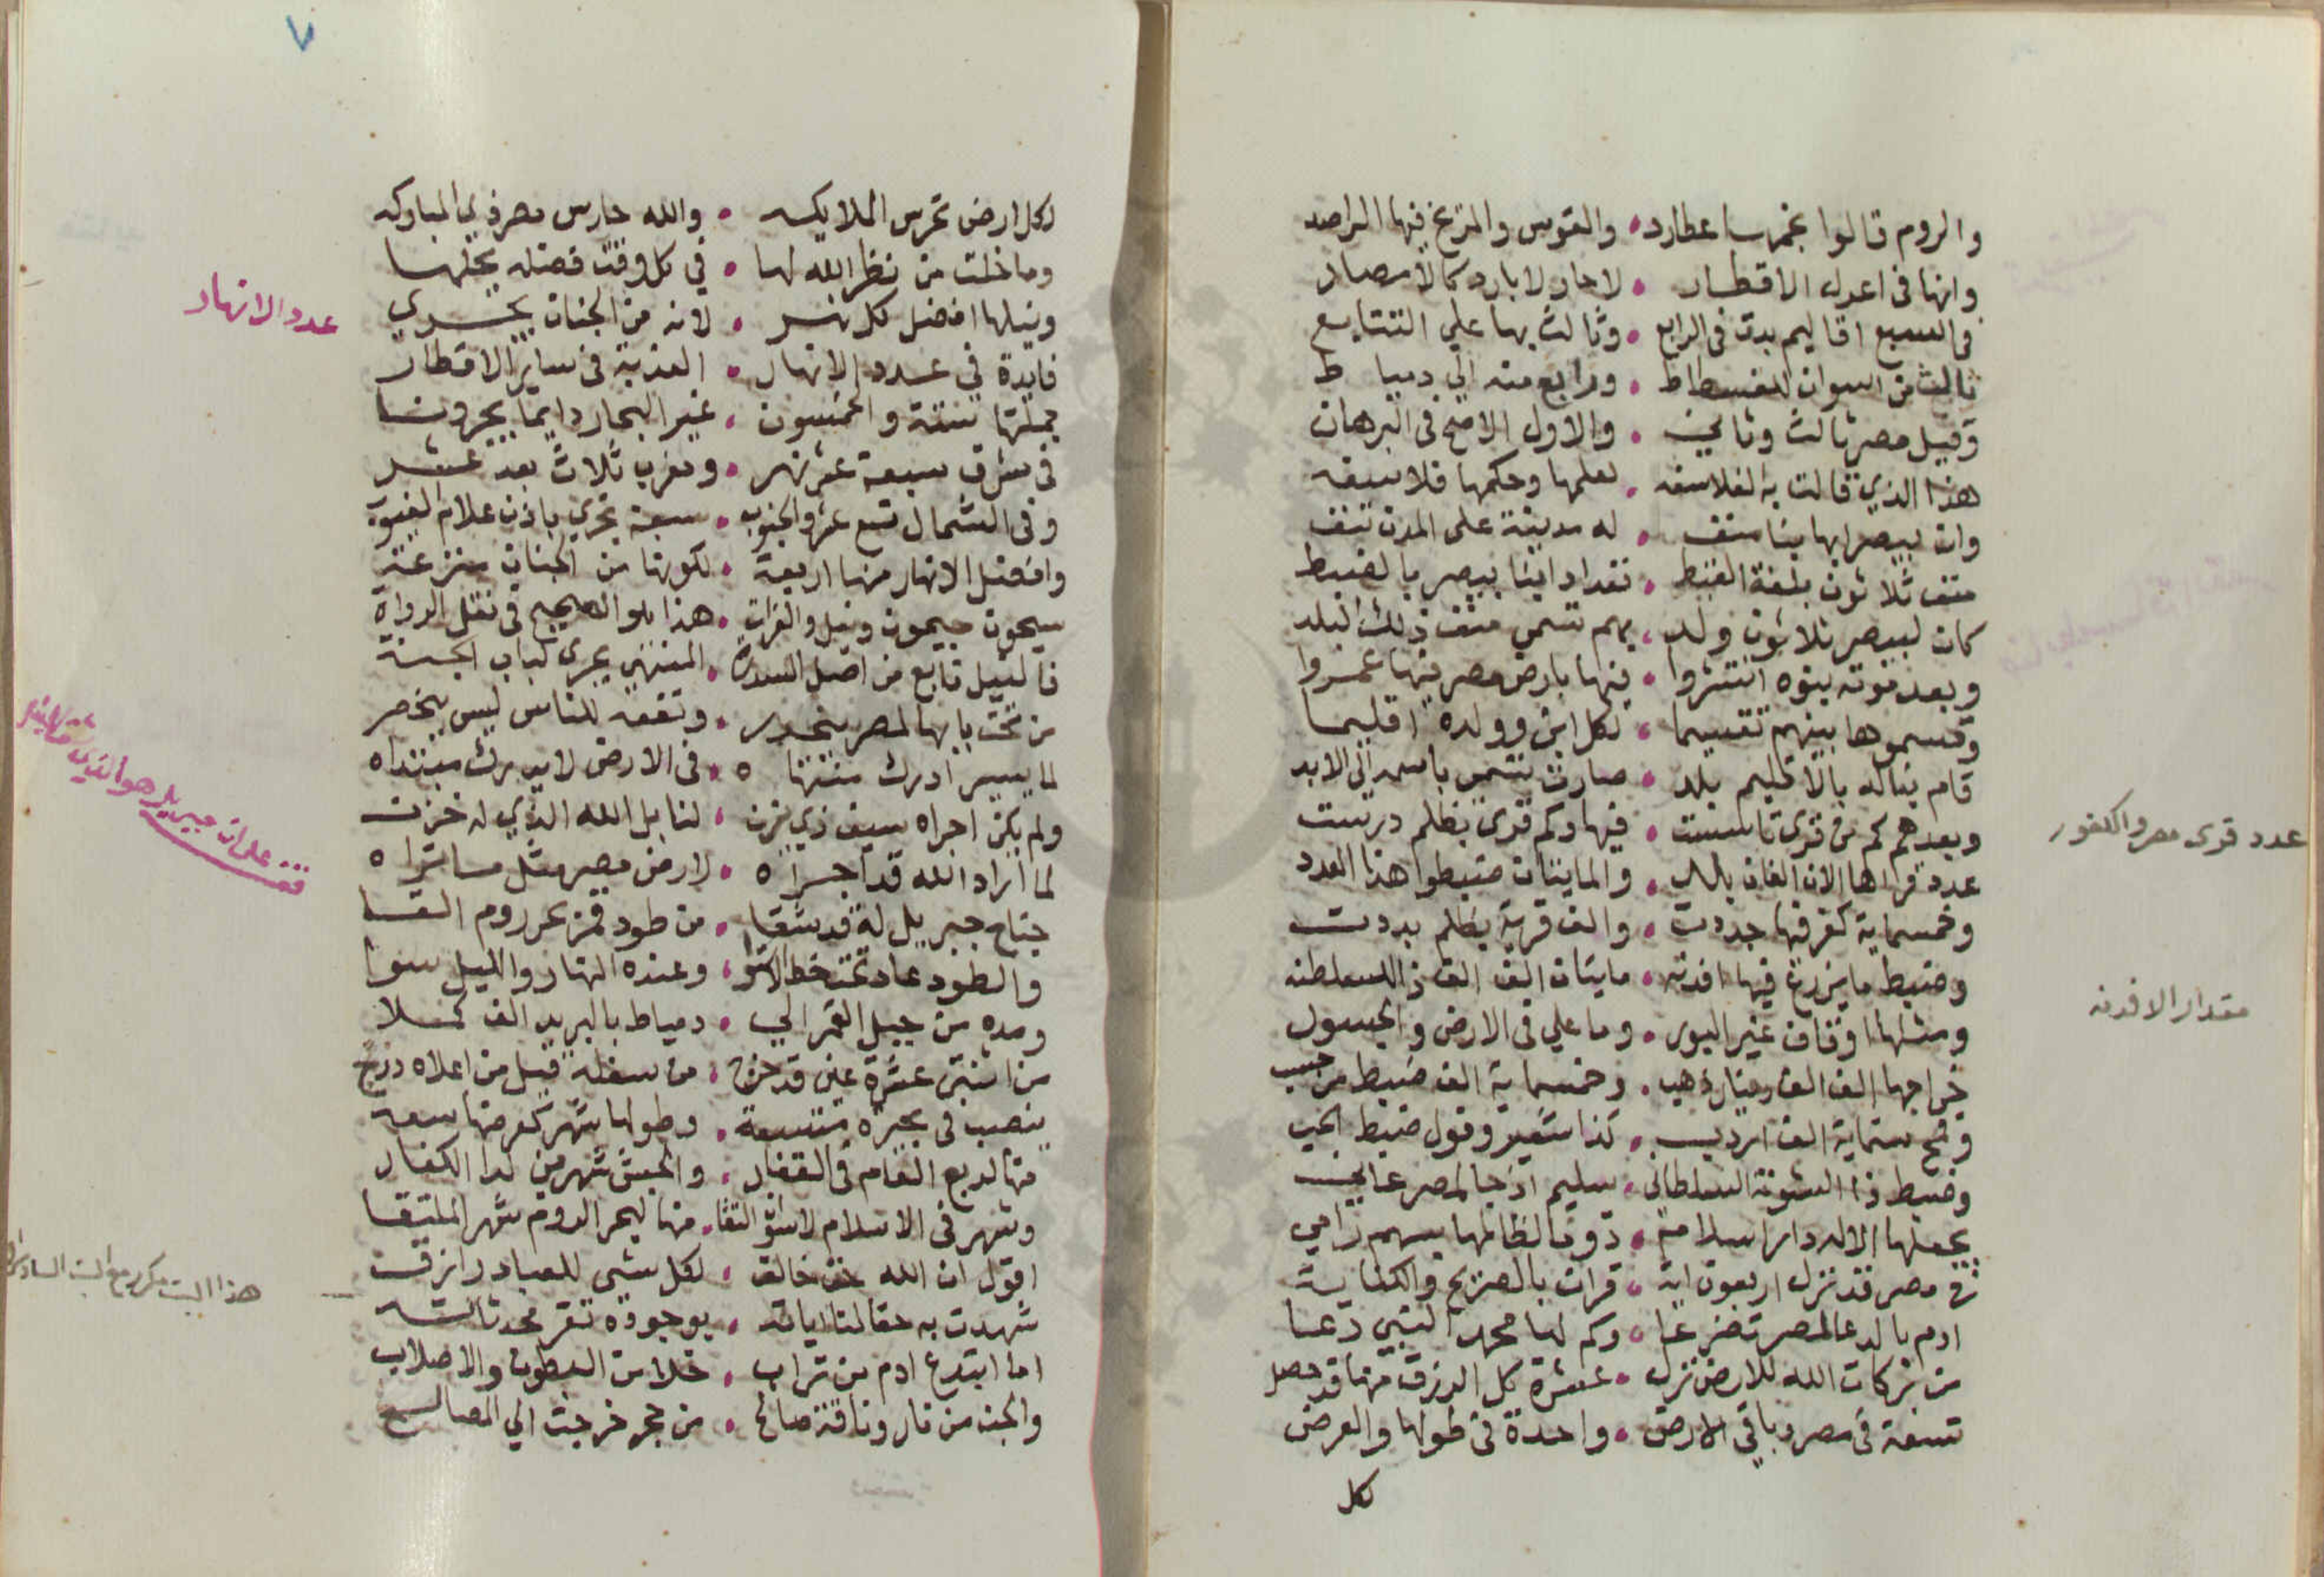 والروم قالوا نجمها عطارد • والقوس والمريخ فيها الراصد
وانها في اعدل الاقطار • لا حار لا بارد كالامصار
في السبع اقاليم بدت في الرابع • وثالث بها علي التتابع
ثالث من اسوان للفسطاط • ورابع منه الي دمياط
وقيل مصر ثالث وثاني • والاول الاصح في البرهان
هذا الذي قالت به الفلاسفه • بعلمها وحكمها فلا سفه
وان بيصر ابها بنا منف • له مدينة على المدن تنف
منف ثلاثون بلغة القبط • تعداد ابنا بيصر بالضبط
كان لبيصر ثلاثون ولد • بهم تسمي منف ذلك البلد
وبعد موته بنوه انتشروا • فيها بارض مصر فيها عمروا
وقسموها بينهم تقسيما • لكل ابن وولده اقليما
قام بناله بالاقليم بلد • صارت تسمى باسمه الي الابد
وبعدهم كم من قرى تاسست • فيها وكم قرى بظلم درست
عدد قراها الان الفان بلد • والمايتان ضبطوا هذا العدد
وخمسماية كفر فيها جددت • والف قرية بظلم بددت
وضبط ما يزرع فيها افدنه • مايتان الف الف ذا للسلطنه
ومثلها اوقاف غير البور • وما علي في الارض والجسور
خراجها الف الف دينار ذهب • وخمسماية الف ضبط من حسب
وقمح ستماية الف اردب • كذا شعير وفول ضبط الحب
وضبط ذا الشونة السلطاني • سليم اذ جا لمصر عا
يجعلها الاله دار اسلام • دوما لظالمها بسهم رامي
في مصر قد نزل اربعون اية • قرات بالصريح والكناية
ادم بالدعا لمصر تضرعا • وكم لها محمد النبي دعا
من بركات الله للارض نزل • عشرة كل الرزق منها قد حصل
تسعة في مصر وباقي الارض • واحدة في طولها والعرض
لكل
عدد قرى مصر والكفور
مقدار الافدنه
٧
لكل ارض تحرس الملايكه • والله حارس مصر ذي المباركه
وما خلت من نظر الله لها • في كل وقت فضله يجلها
ونيلها افضل كل نهر • لانه من الجنان يجري
فايدة في عدد الانهار • العذبة في ساير الاقطار
جملتها ستة والخمسون • غير البحار دايما يجرونا
في شرق سبعة عشر نهر • ومغرب ثلاث بعد عشر
وفي الشمال تسع عشر والجنوب • سبعة تجري باذن علام الغيوب
وافضل الانهار منها اربعة • لكونها من الجنان منزعة
سيحون جيحون ونيل والفرات • هذا هو الصحيح في نقل الرواة
فالنيل نابع من اصل السدرة • المنتهى يجرى لباب الجنة
من تحت بابها لمصر ينحدر • ونفعه للناس ليس ينحصر
لما يسير ادرك منتهاه • في الارض لا يدرك مبتداه
ولم يكن اجراه سيف ذي يزن • لنا بل الله الذي له خزن
لما اراد الله قد اجراه • لارض مصر مثل ما تراه
جناح جبريل له قد شقا • من طود قمر بحر روم القا
والطود عاد تحت خط الاستوا • وعنده النهار والليل سوا
ومده من جبل القمر الي • دمياط بالبريد الف كملا
من اثنتى عشرة عين قد خرج • من سفله قيل من اعلاه درج
ينصب في بحيرة متسعة • وطولها شهر كعرضها سعة
منها لربع العام في القفار • والحبش شهرين لدا الكفار
وشهر في الاسلام لاسوان التقا • منها لبحر الروم شهر الملتقا
اقول ان الله حق خالق • لكل شي للعباد رازق
شهدت به حقا لنا اياته • بوجوده تقر محدثاته
اما ابتدع ادم من تراب • خلا من البطون والاصلاب
والجن من نار وناقة صالح • من حجر خرجت الي المصالح
عدد الانهار
قف على ان جبريل هو الذي
هذا البيت مكرر مع البيت السادس